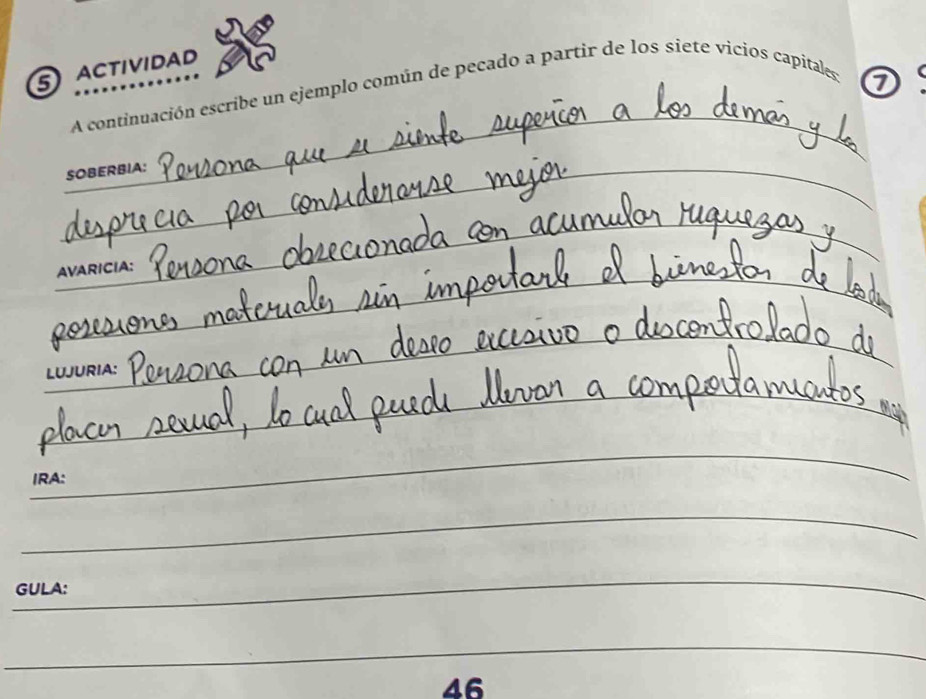 5 ACTIVIDAD
A continuación escribe un ejemplo común de pecado a partir de los siete vicios capitales:
7
SOBERBIA: Persona que se siente superior a los demás y los
desprecia por considerarse mejor
AVARICIA: Persona obsecionada con acumular riquezas y
posesiones materiales sin importarle el bienestar de los demas
LUJURIA: Persona con un deseo excesivo o descontrolado de
placer sexual, lo cual puede llevar a comportamientos
IRA:
GULA:
46